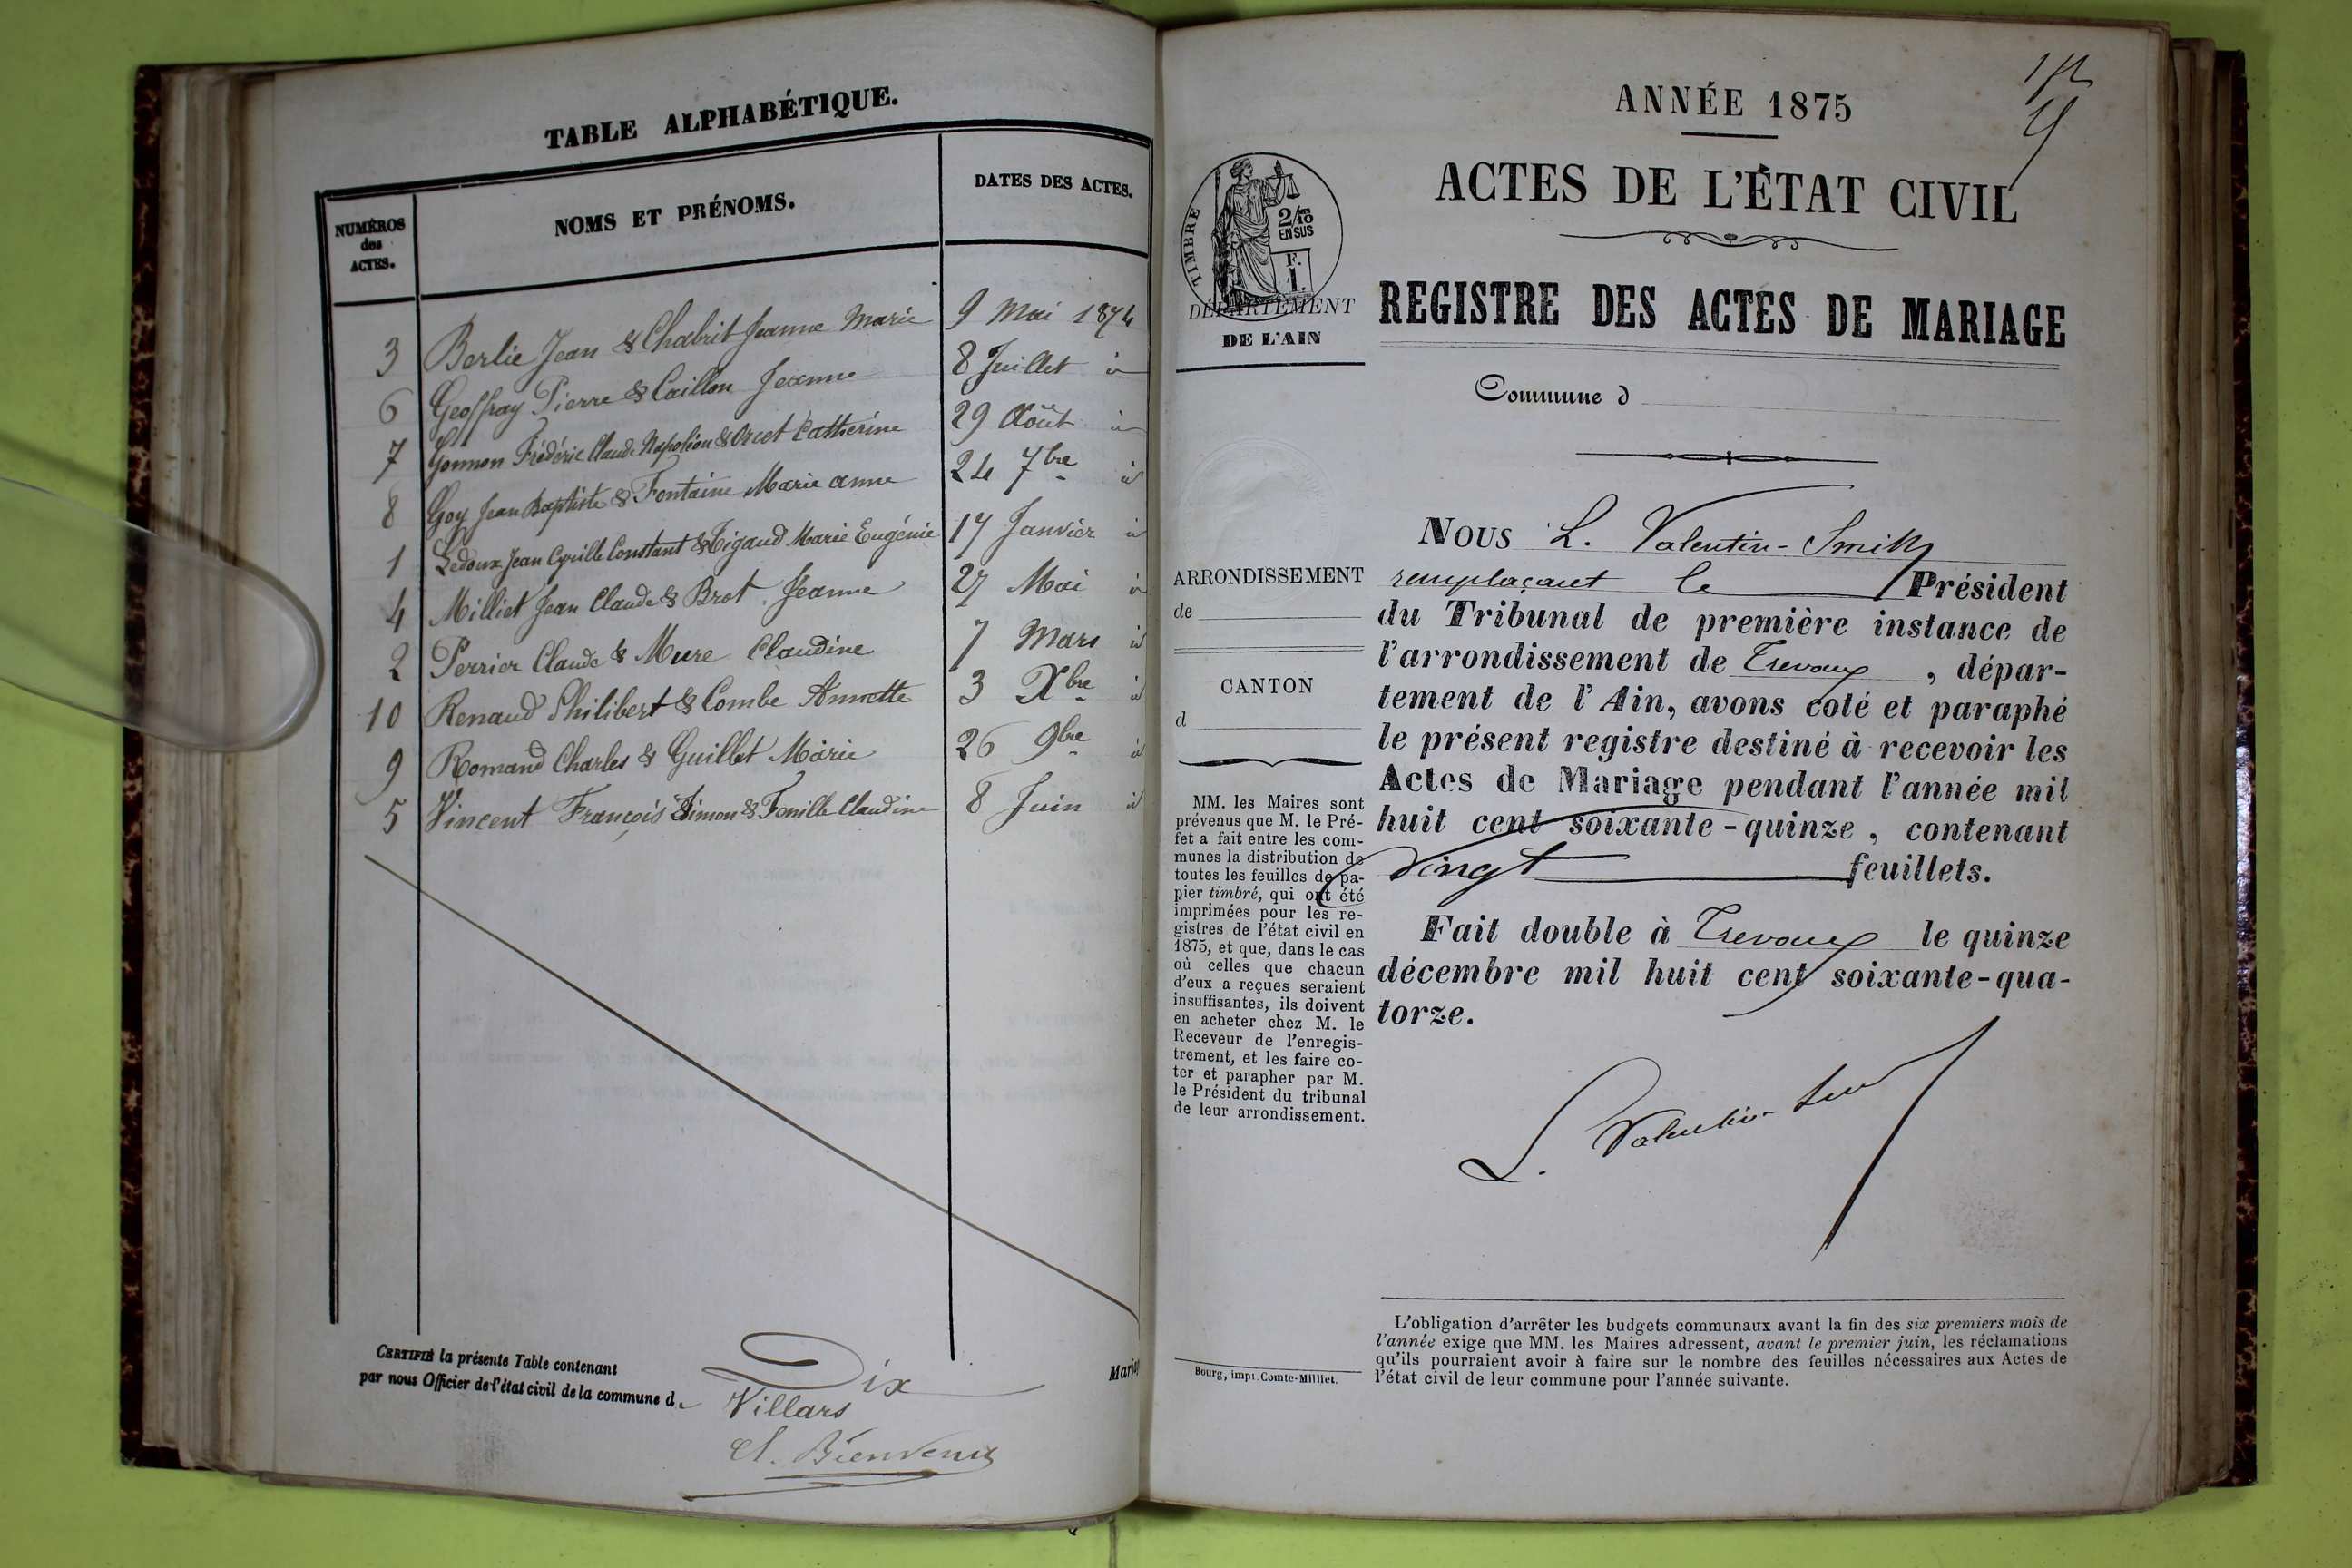 TABLE ALPHABÉTIQUE.
NUMÉROS
des
ACTES.
NOMS ET PRÉNOMS.
DATES DES ACTES.
3 Berlie Jean & Chabrit Jeanne Marie 9 Mai 1874
6 Geoffray Pierre & Caillon Jeanne 8 Juillet id
7 Gonnon Frédéric Claude Napoléon & Orcet Catherine 29 Août id
8 Goy Jean Baptiste & Fontaine Marie anne 24 7bre id
1 Ledoux Jean Cyrille Constant & Tigaud Marie Eugénie 17 Janvier id
4 Milliet Jean Claude & Brot Jeanne 27 Mai id
2 Perrier Claude & Mure Claudine 7 Mars id
10 Renaud Philibert & Combe Annette 3 Xbre id
9 Romand Charles & Guillet Marie 26 9bre id
5 Vincent François Simon & Fenille Claudine 8 Juin id
CERTIFIÉ la présente Table contenant Dix Mariag
par nous Officier de l'état civil de la commune d. Villars
Cl. Bienvenu
ANNÉE 1875
ACTES DE L'ÉTAT CIVIL
TIMBRE
2/10
EN SUS
F.
1.
DÉPARTEMENT
DE L'AIN
REGISTRE DES ACTES DE MARIAGE
Commune d
ARRONDISSEMENT
de
CANTON
d
MM. les Maires sont
prévenus que M. le Pré-
fet a fait entre les com-
munes la distribution de
toutes les feuilles de pa-
pier timbré, qui ont été
imprimées pour les re-
gistres de l'état civil en
1875, et que, dans le cas
où celles que chacun
d'eux a reçues seraient
insuffisantes, ils doivent
en acheter chez M. le
Receveur de l'enregis-
trement, et les faire co-
ter et parapher par M.
le Président du tribunal
de leur arrondissement.
Bourg, impr. Comte-Milliet.
NOUS L. Valentin-Smith
remplaçant le Président
du Tribunal de première instance de
l'arrondissement de Trevoux, dépar-
tement de l'Ain, avons coté et paraphé
le présent registre destiné à recevoir les
Actes de Mariage pendant l'année mil
huit cent soixante-quinze, contenant
vingt feuillets.
Fait double à Trevoux le quinze
décembre mil huit cent soixante-qua-
torze.
L. Valentin Sm
L'obligation d'arrêter les budgets communaux avant la fin des six premiers mois de
l'année exige que MM. les Maires adressent, avant le premier juin, les réclamations
qu'ils pourraient avoir à faire sur le nombre des feuilles nécessaires aux Actes de
l'état civil de leur commune pour l'année suivante.